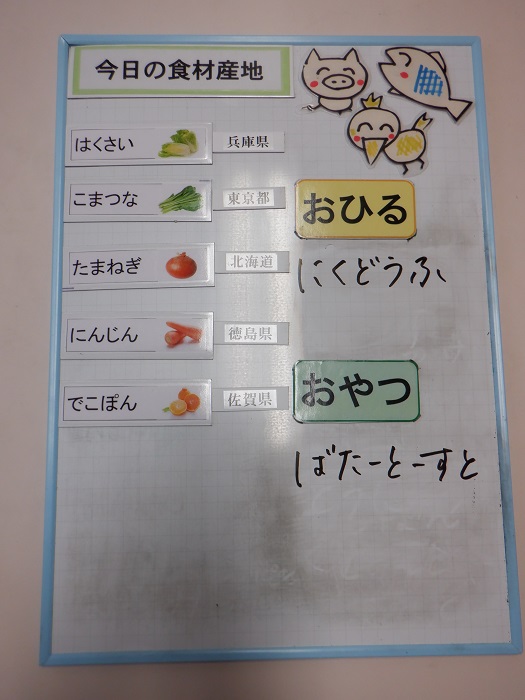 今日の食材産地
はくさい 兵庫県
こまつな 東京都
たまねぎ 北海道
にんじん 徳島県
でこぽん 佐賀県
おひる
にくどうふ
おやつ
ばたーとーすと